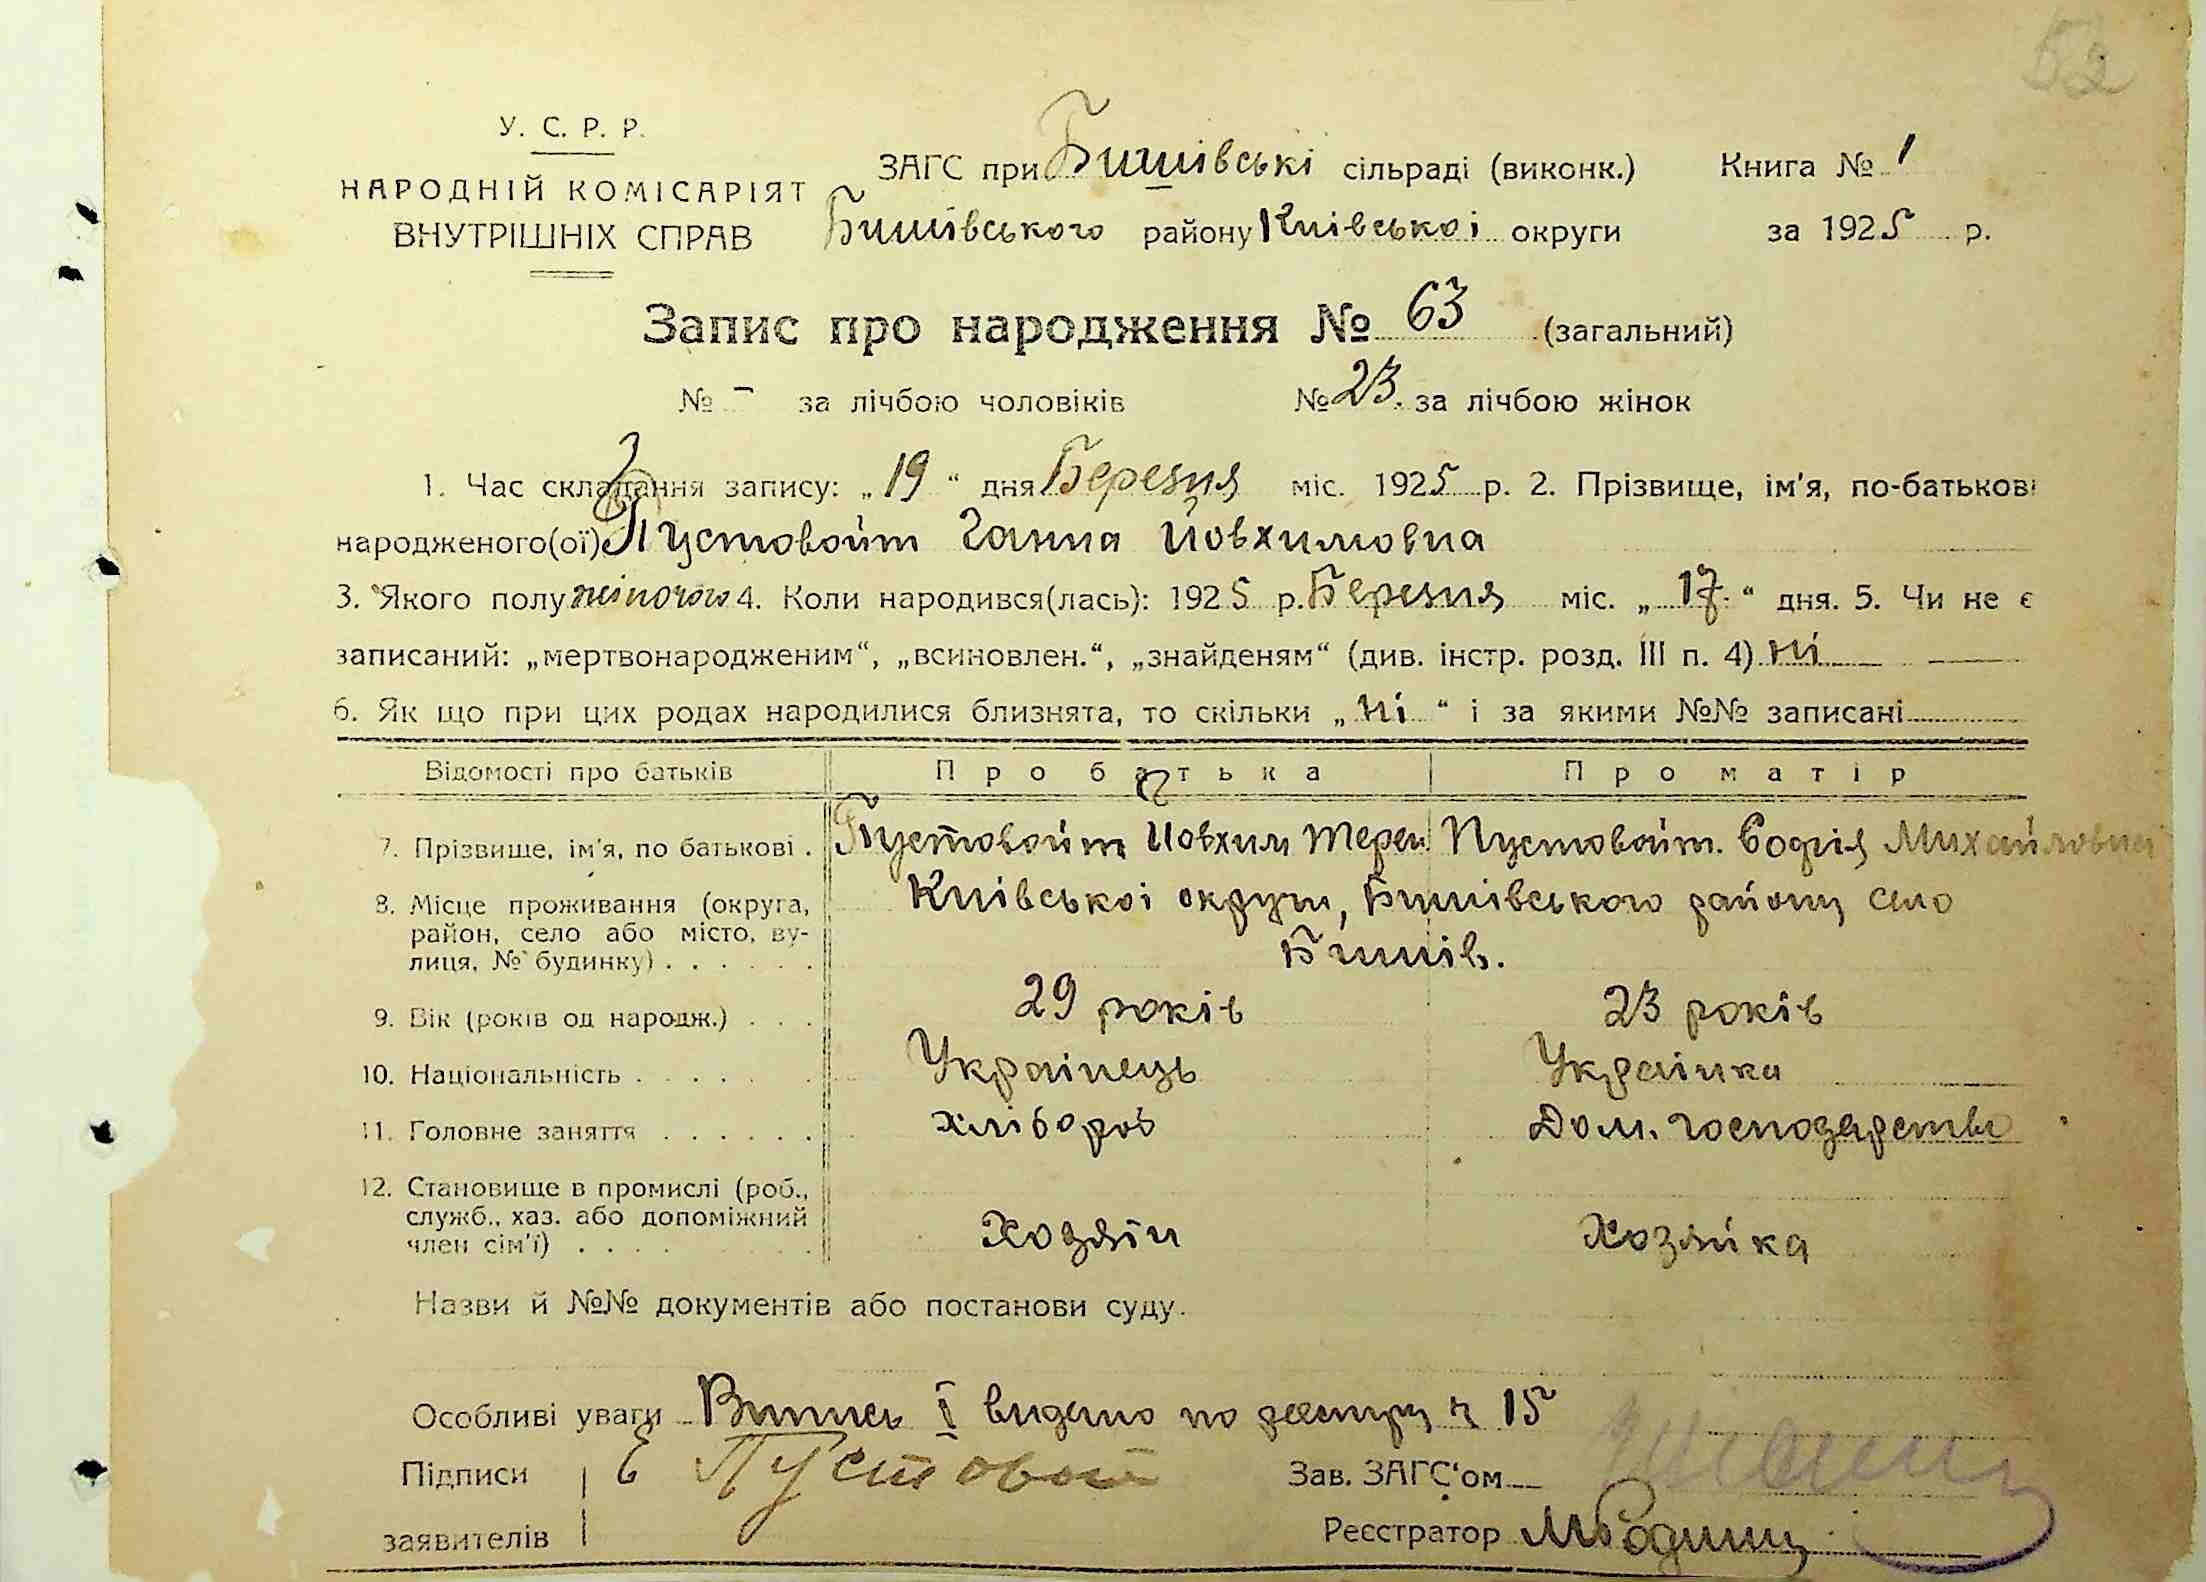 52
У. С. Р. Р.
НАРОДНІЙ КОМІСАРІЯТ
ВНУТРІШНІХ СПРАВ
ЗАГС при Бишівські сільраді (виконк.) Книга № 1
Бишівського району Київської округи за 1925 р.
Запис про народження № 63 (загальний)
№ – за лічбою чоловіків № 23. за лічбою жінок
1. Час складання запису: „19“ дня Березня міс. 1925 р. 2. Прізвище, ім'я, по-батькові
народженого(ої) Пустовойт Ганна Йовхимовна
3. Якого полу жіночого 4. Коли народився(лась): 1925 р. Березня міс. „17“ дня. 5. Чи не є
записаний: „мертвонародженим“, „всиновлен.“, „знайденям“ (див. інстр. розд. III п. 4) ні
6. Як що при цих родах народилися близнята, то скільки „ні“ і за якими №№ записані
Відомості про батьків Про батька Про матір
7. Прізвище, ім'я, по батькові . Пустовойт Йовхим Терен Пустовойт. Софія Михайловна
8. Місце проживання (округа, Київської округи, Бишівського району село
район, село або місто, ву-
лиця, № будинку) . . . . . . Бишів.
9. Вік (років од народж.) . . . 29 років 23 років
10. Національність . . . . . . Українець Українка
11. Головне заняття . . . . . . хлібороб Дом. господарство
12. Становище в промислі (роб.,
служб., хаз. або допоміжний Хозяїн Хозяйка
член сім'ї) . . . . . .
Назви й №№ документів або постанови суду.
Особливі уваги Випись I видано по реєстру ч 15
Підписи Є Пустовой Зав. ЗАГС'ом
заявителів Реєстратор